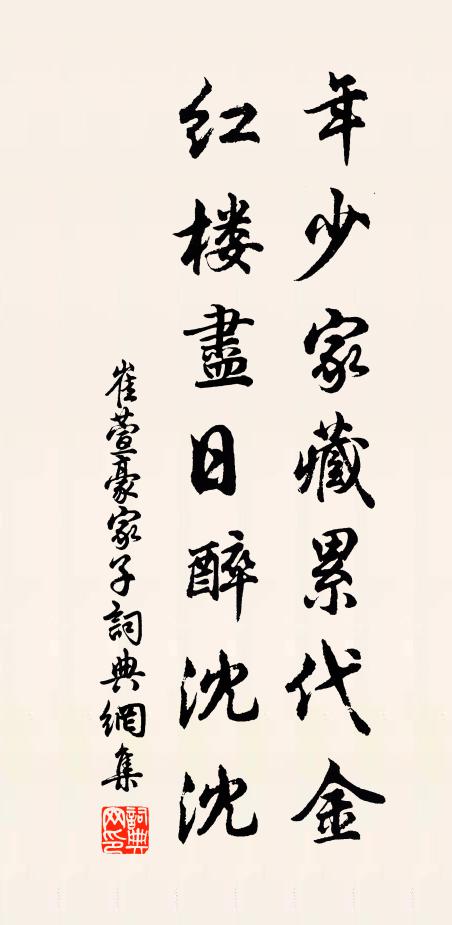 年少家藏累代金
红楼盡日醉沈沈
崔萱豪家子詞典網集
詞典網印